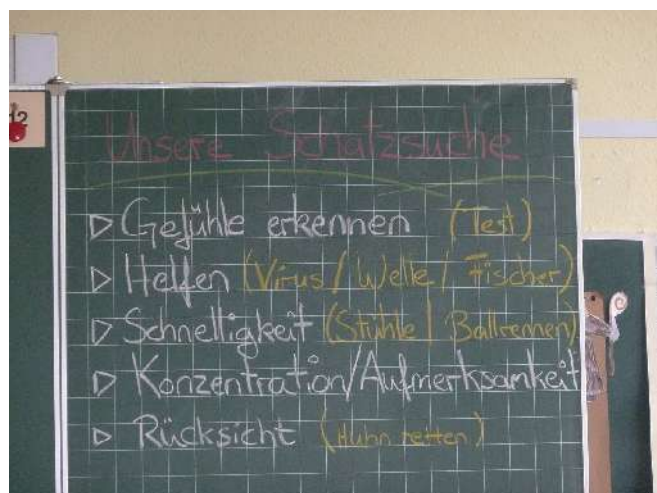 12
Unsere Schatzsuche
▷ Gefühle erkennen (Test)
▷ Helfen (Virus / Welle / Fischer)
▷ Schnelligkeit (Stühle / Ballrennen)
▷ Konzentration/Aufmerksamkeit
▷ Rücksicht (Huhn retten)